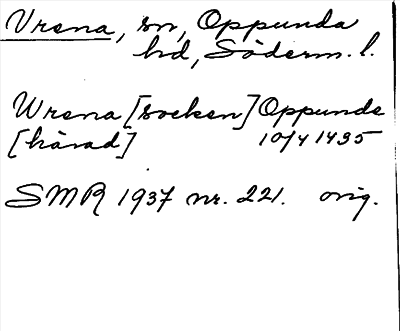 Vrena, sn, Oppunda
hd, Söderm. l.
Wrena [socken] Oppunde
[härad] 10/4 1435
SMR 1937 nr. 221. orig.